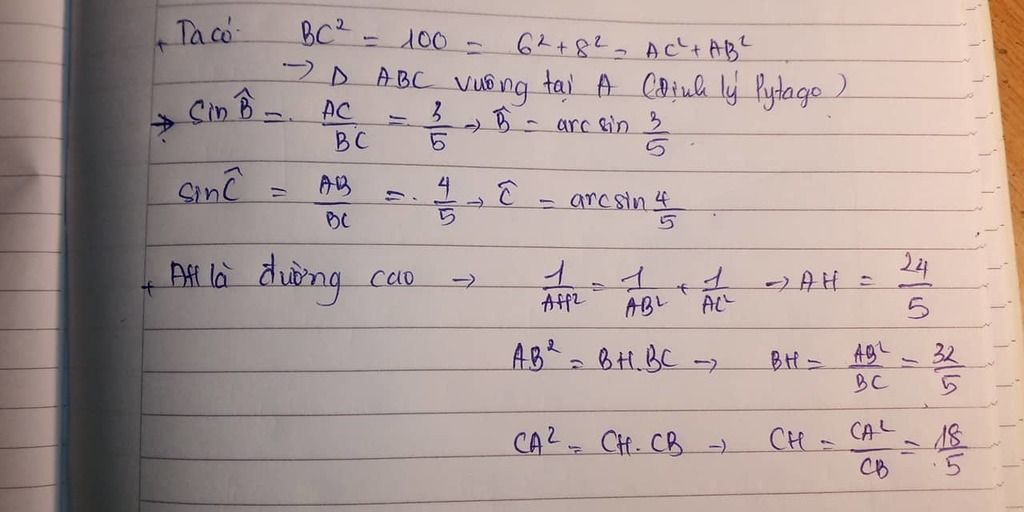 + Ta có: BC² = 100 = 6² + 8² = AC² + AB²
→ Δ ABC vuông tại A (Định lý Pytago)
→ Sin B̂ = AC/BC = 3/5 → B̂ = arc sin 3/5
sin Ĉ = AB/BC = 4/5 → Ĉ = arcsin 4/5
+ AH là đường cao → 1/AH² = 1/AB² + 1/AC² → AH = 24/5
AB² = BH.BC → BH = AB²/BC = 32/5
CA² = CH.CB → CH = CA²/CB = 18/5